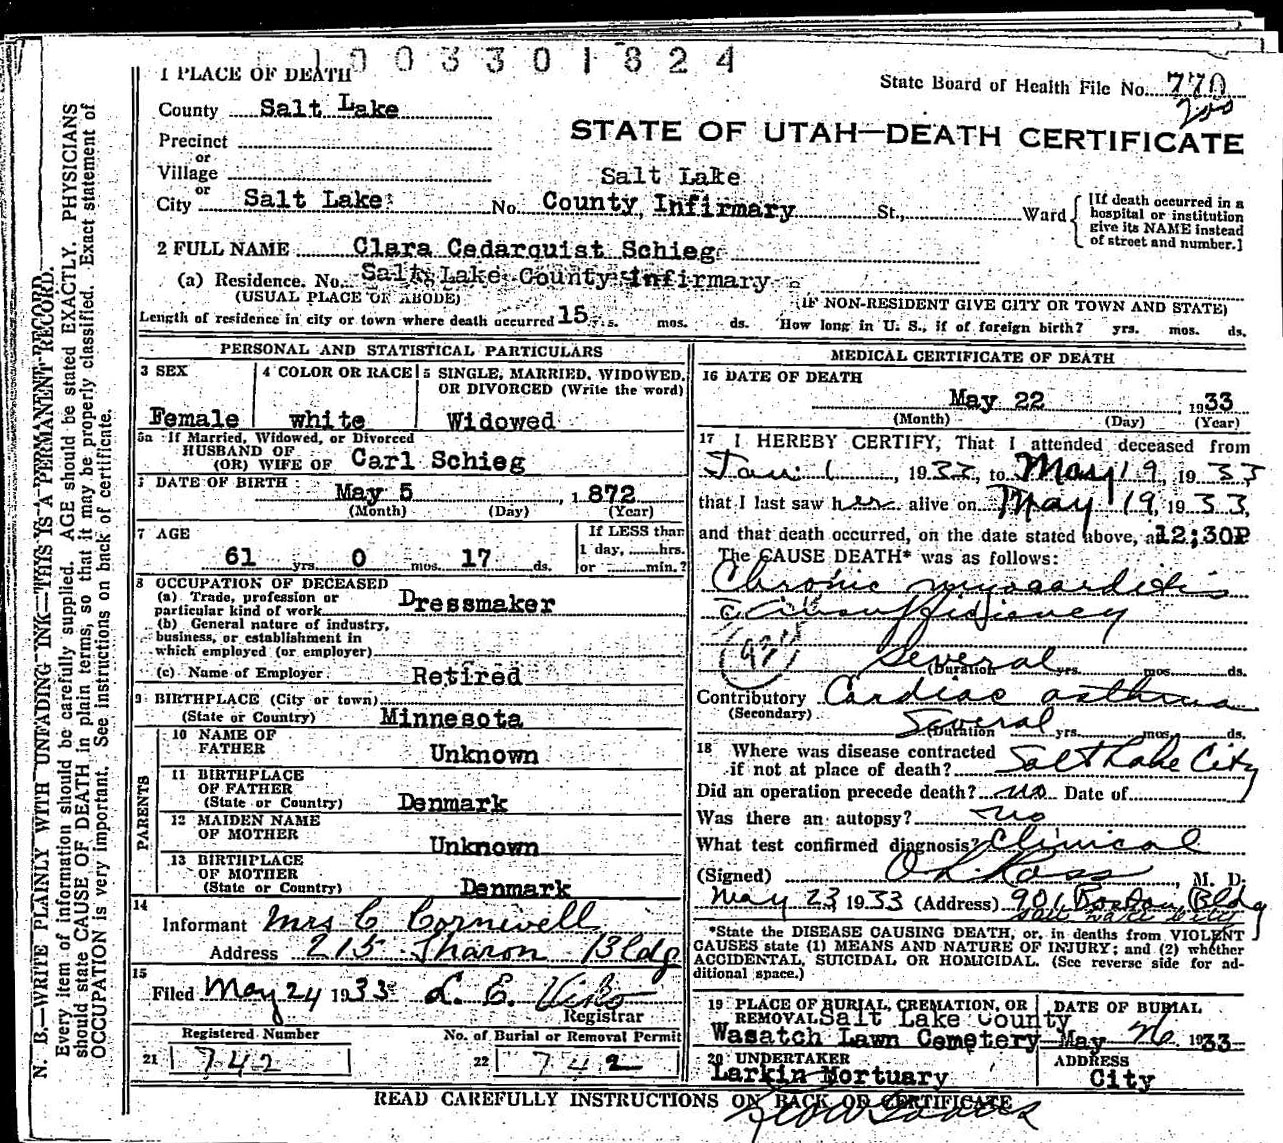 1003301824
1 PLACE OF DEATH
State Board of Health File No. 770
200
County Salt Lake
STATE OF UTAH—DEATH CERTIFICATE
Precinct
or
Village
Salt Lake
or
City Salt Lake No. County Infirmary St., Ward
[If death occurred in a
hospital or institution
give its NAME instead
of street and number.]
2 FULL NAME Clara Cedarquist Schieg
(a) Residence. No. Salt Lake County Infirmary
(USUAL PLACE OF ABODE) (IF NON-RESIDENT GIVE CITY OR TOWN AND STATE)
Length of residence in city or town where death occurred 15 yrs. mos. ds. How long in U. S., if of foreign birth? yrs. mos. ds.
PERSONAL AND STATISTICAL PARTICULARS
3 SEX
Female
4 COLOR OR RACE
white
5 SINGLE, MARRIED, WIDOWED,
OR DIVORCED (Write the word)
Widowed
5a If Married, Widowed, or Divorced
HUSBAND OF
(OR) WIFE OF Carl Schieg
DATE OF BIRTH
May 5, 1872
(Month) (Day) (Year)
7 AGE
61 yrs. 0 mos. 17 ds.
If LESS than
1 day, hrs.
or min.?
8 OCCUPATION OF DECEASED
(a) Trade, profession or
particular kind of work Dressmaker
(b) General nature of industry,
business, or establishment in
which employed (or employer)
(c) Name of Employer Retired
9 BIRTHPLACE (City or town)
(State or Country) Minnesota
PARENTS
10 NAME OF
FATHER Unknown
11 BIRTHPLACE
OF FATHER
(State or Country) Denmark
12 MAIDEN NAME
OF MOTHER Unknown
13 BIRTHPLACE
OF MOTHER
(State or Country) Denmark
14
Informant Mrs C Cornwell
Address 215 Sharon Bldg
15
Filed May 24 1933 L. E.
Registrar
Registered Number
21 742
No. of Burial or Removal Permit
22 742
MEDICAL CERTIFICATE OF DEATH
16 DATE OF DEATH
May 22, 1933
(Month) (Day) (Year)
17 I HEREBY CERTIFY, That I attended deceased from
Jan 1, 1933, to May 19, 1933
that I last saw her alive on May 19, 1933,
and that death occurred, on the date stated above, at 12:30P
The CAUSE DEATH* was as follows:
Chronic myocarditis
c insufficiency
(93)
Several
(Duration yrs. mos. ds.
Contributory Cardiac asthma
(Secondary)
Several
(Duration yrs. mos. ds.
18 Where was disease contracted
if not at place of death? Salt Lake City
Did an operation precede death? no Date of
Was there an autopsy? no
What test confirmed diagnosis? Clinical
(Signed) Ross, M. D.
May 23 1933 (Address) 901 Boston Bldg
Salt Lake City
*State the DISEASE CAUSING DEATH, or, in deaths from VIOLENT
CAUSES state (1) MEANS AND NATURE OF INJURY; and (2) whether
ACCIDENTAL, SUICIDAL OR HOMICIDAL. (See reverse side for ad-
ditional space.)
19 PLACE OF BURIAL, CREMATION, OR
REMOVAL Salt Lake County
Wasatch Lawn Cemetery
DATE OF BURIAL
May 26 1933
20 UNDERTAKER
Larkin Mortuary
ADDRESS
City
READ CAREFULLY INSTRUCTIONS ON BACK OF CERTIFICATE
N. B.—WRITE PLAINLY WITH UNFADING INK—THIS IS A PERMANENT RECORD.
Every item of information should be carefully supplied. AGE should be stated EXACTLY. PHYSICIANS
should state CAUSE OF DEATH in plain terms, so that it may be properly classified. Exact statement of
OCCUPATION is very important. See instructions on back of certificate.